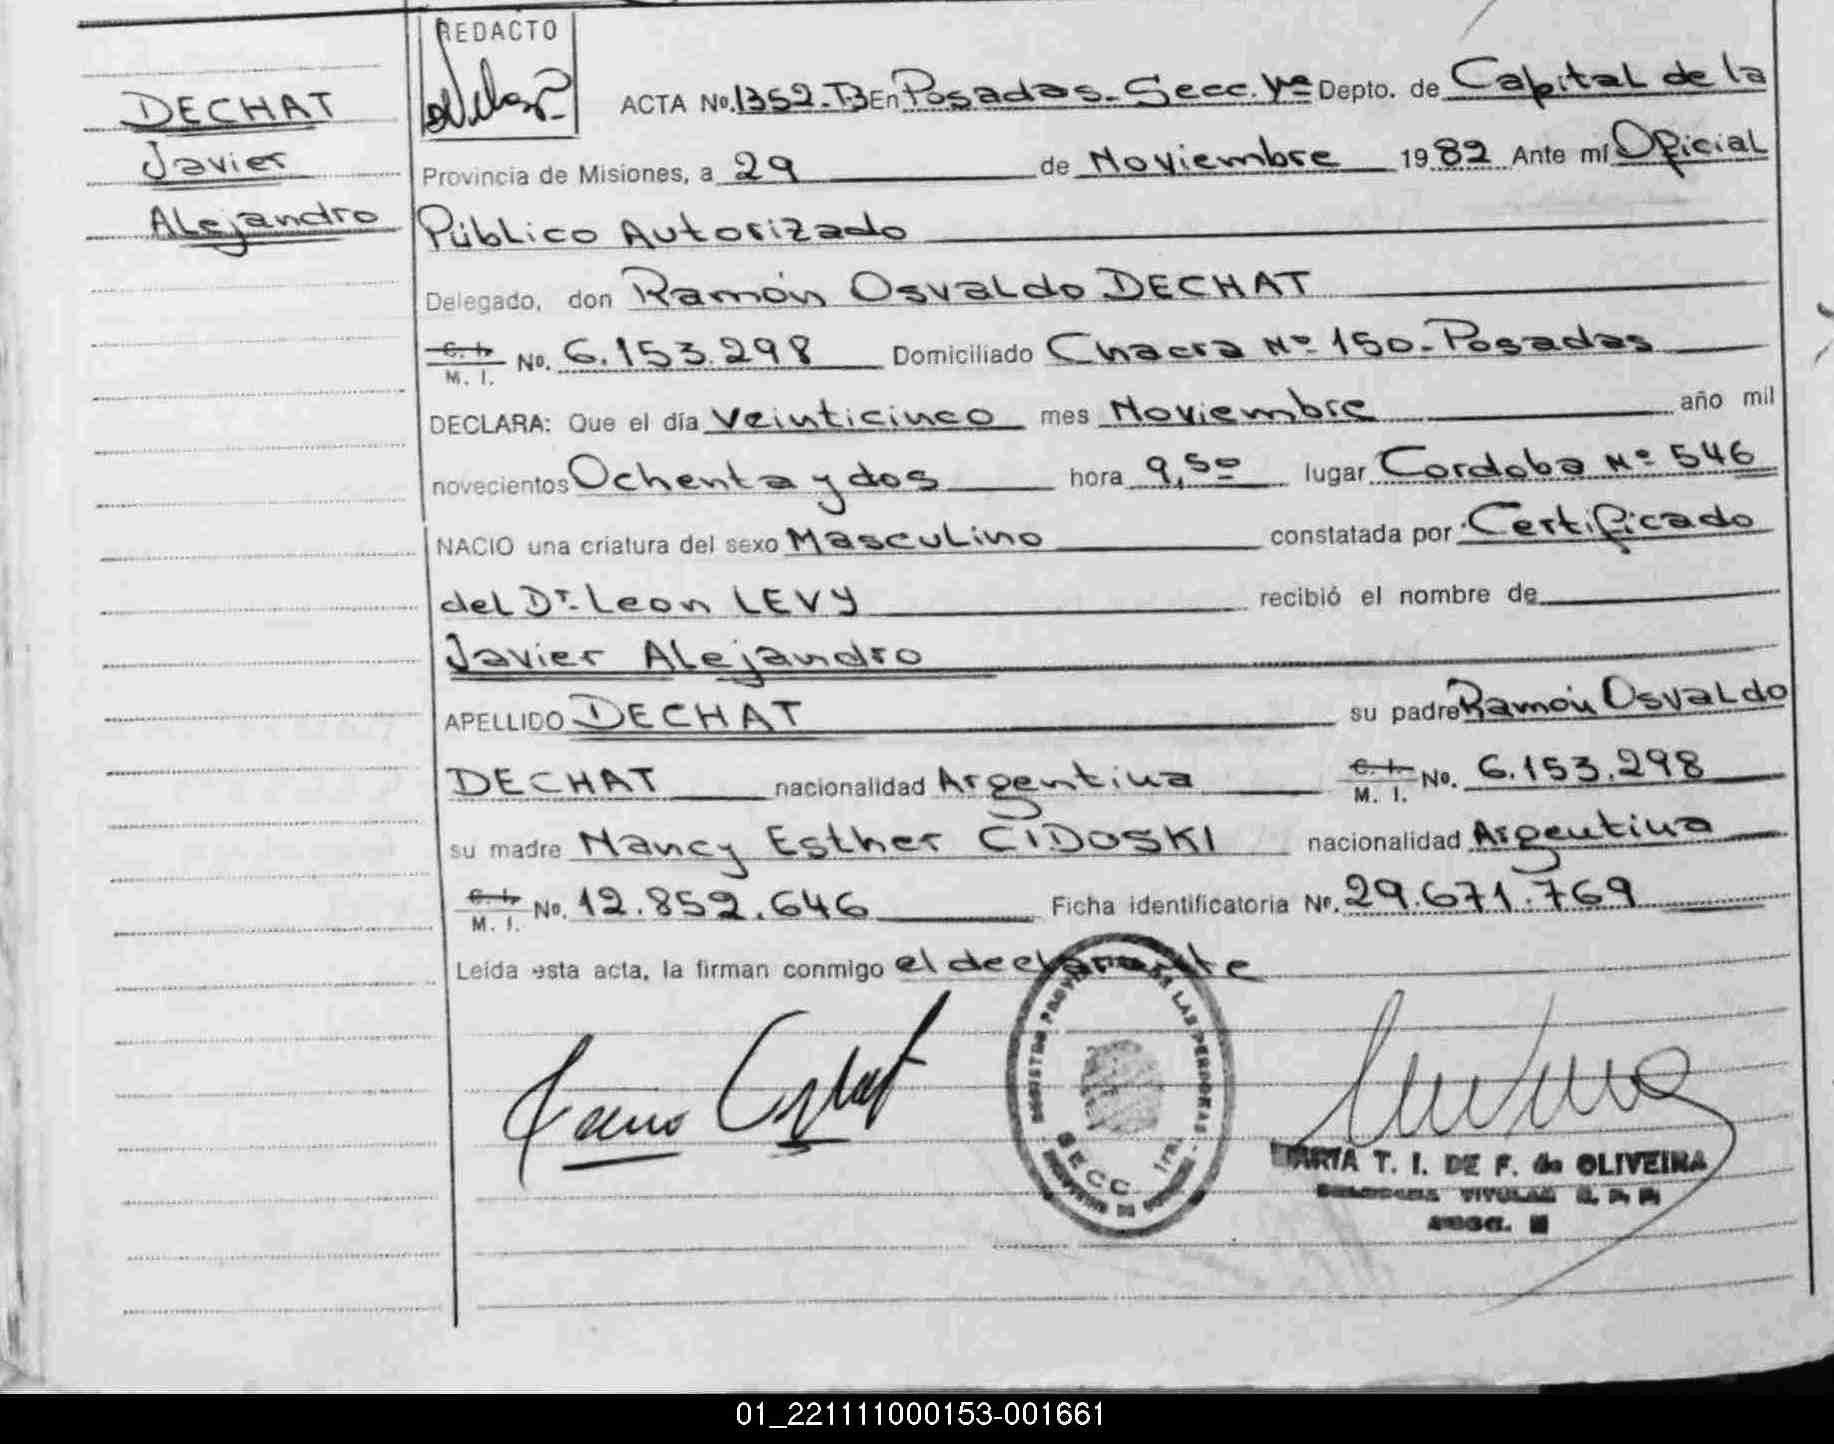 DECHAT
Javier
Alejandro
REDACTO
ACTA No. 1352-T3 En Posadas-Secc. 1ra Depto. de Capital de la
Provincia de Misiones, a 29 de Noviembre 1982 Ante mí Oficial
Público Autorizado
Delegado, don Ramón Osvaldo DECHAT
C. I. M. I. No. 6.153.298 Domiciliado Chacra Nº 150-Posadas
DECLARA: Que el día Veinticinco mes Noviembre año mil
novecientos Ochenta y dos hora 9,50 lugar Cordoba Nº 546
NACIO una criatura del sexo Masculino constatada por Certificado
del Dr. Leon LEVY recibió el nombre de
Javier Alejandro
APELLIDO DECHAT su padre Ramón Osvaldo
DECHAT nacionalidad Argentina C. I. M. I. No. 6.153.298
su madre Nancy Esther CIDOSKI nacionalidad Argentina
C. I. M. I. No. 12.852.646 Ficha identificatoria No. 29.671.769
Leída esta acta, la firman conmigo el declarante
DE LAS PERSONAS
SECC. 1ra.
MARIA T. I. DE F. de OLIVEIRA
01_221111000153-001661